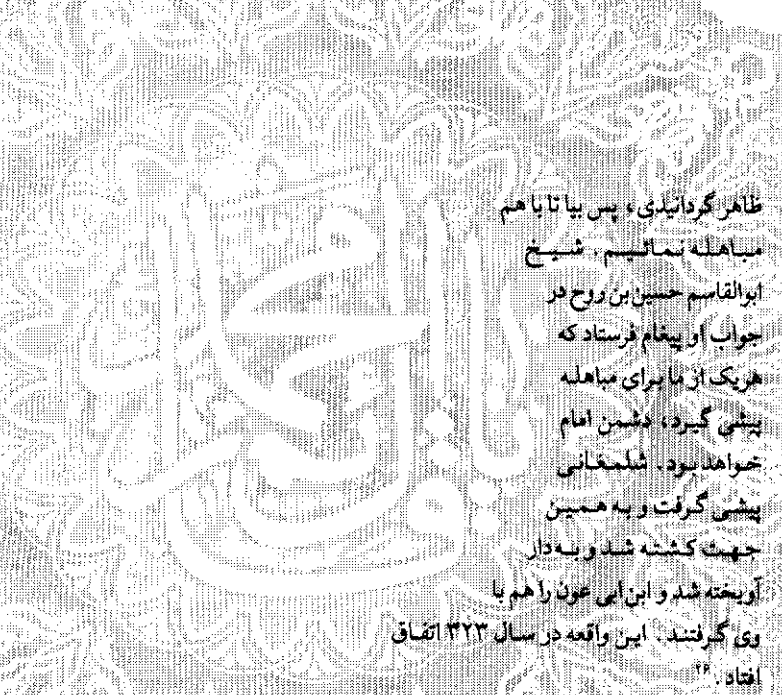 ظاهر گردانیدی، پس بیا تا با هم
مباهله نمائیم. شیخ
ابوالقاسم حسین‌بن روح در
جواب او پیغام فرستاد که
هریک از ما برای مباهله
پیشی گیرد، دشمن امام
خواهد بود. شلمغانی
پیشی گرفت و به همین
جهت کشته شد و به دار
آویخته شد و ابن ابی عون را هم با
وی گرفتند. این واقعه در سال ۳۲۳ اتفاق
افتاد.۲۶